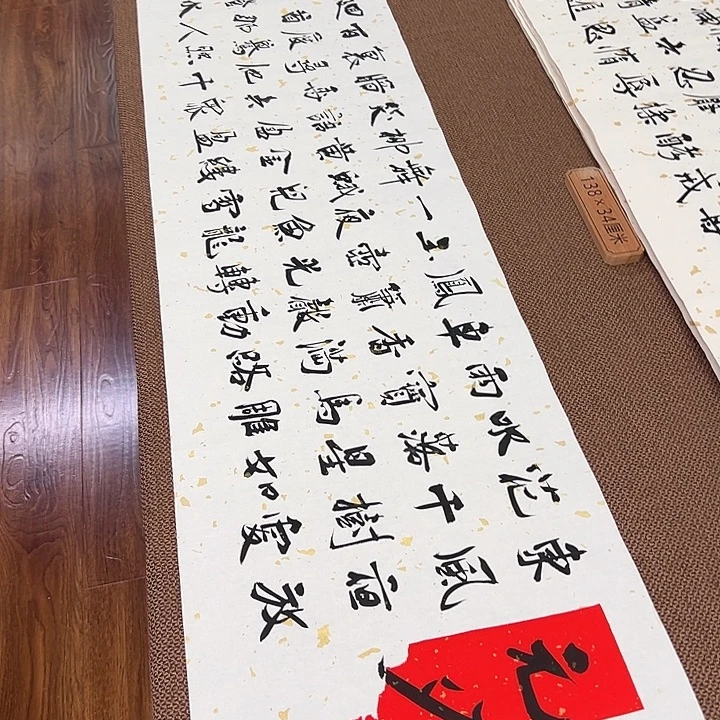 元夕
東風夜放
花千樹更
吹落星如
雨寶馬雕
車香滿路
鳳簫聲動
玉壺光轉
一夜魚龍
舞蛾兒雪
柳黃金縷
笑語盈盈
暗香去眾
裏尋他千
百度驀然
迴首那人
138×34厘米